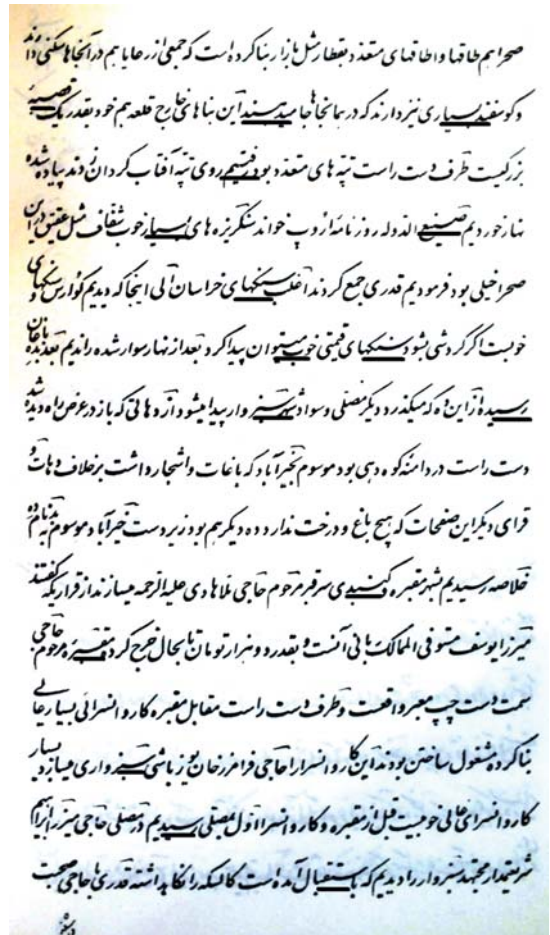 صحرا هم طاقها و اطاقهای متعدد بقطار مثل بازار بنا کرده است که جمعی از رعایا هم در آنجاها سکنی دارند
و گوسفند بسیاری نیز دارند که در همانجاها جا میدهند این بناهای خارج قلعه هم خود بقدر یک قصبه
بزرگیست طرف دست راست تپه های متعدد بود رفتیم روی تپه آفتاب گردان زدند پیاده شده
نهار خوردیم صنیع الدوله روزنامه اروپ خواند سنگریزه های بسیار خوب شفاف مثل عقیق در این
صحرا خیلی بود فرمودیم قدری جمع کردند اغلب سنگهای خراسان الی اینجا که دیدیم کوارس و سنگهای
خوبست اگر گردشی بشود سنگهای قیمتی خوب میتوان پیدا کرد بعد از نهار سوار شده راندیم بعد بده باغان
رسیده از این ده که میگذرد دیگر مصلی و سواد شهر سبزوار پیدا میشود از دهاتی که باز در عرض راه دیده شد
دست راست در دامنه کوه دهی بود موسوم بخیرآباد که باغات و اشجار داشت برخلاف دهات و
قرای دیگر این صفحات که هیچ باغ و درخت ندارد ده دیگر هم بود زیر دست خیرآباد موسوم به
خلاصه رسیدیم بشهر مقبره و گنبدی سر قبر مرحوم حاجی ملا هادی علیه الرحمه میسازند از قراریکه گفتند
میرزا یوسف مستوفی الممالک بانی آنست و بقدر دو هزار تومان تا بحال خرج کرده مقبره مرحوم حاجی
سمت دست چپ معبر واقعست و طرف دست راست مقابل مقبره کاروانسرائی بسیار عالی
بنا کرده مشغول ساختن بودند این کاروانسرا را حاجی فرامرز خان یوزباشی سبزواری میسازد بسیار
کاروانسرای عالی خوبیست قبل از مقبره و کاروانسرا اول بمصلی رسیدیم در مصلی حاجی میرزا ابراهیم
شریعتمدار مجتهد سبزوار را دیدیم که باستقبال آمده است کالسکه را نگاهداشته قدری با حاجی صحبت